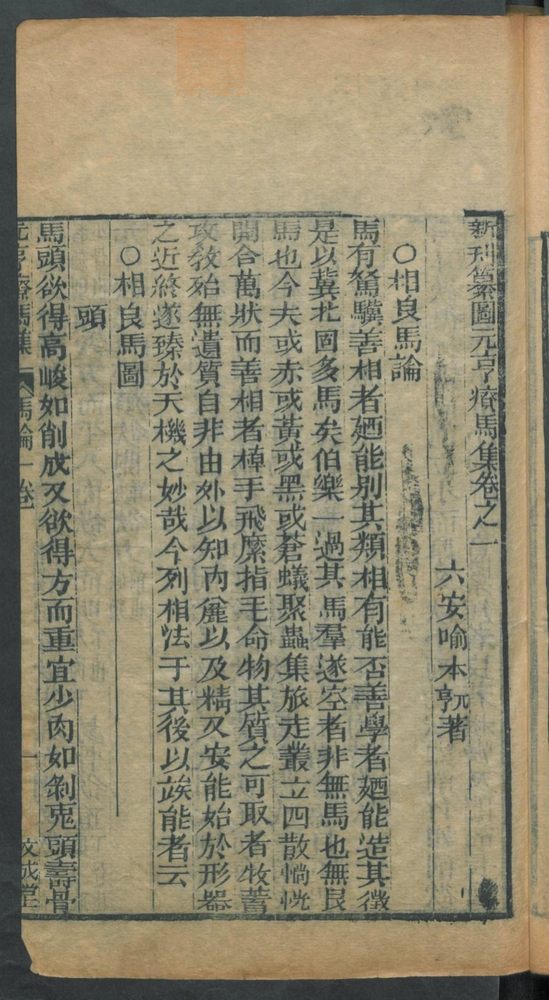 新刊纂圖元亨療馬集卷之一
六安喻本元亨著
○相良馬論
馬有駑驥善相者廼能別其類相有能否善學者廼能造其徵
是以冀北固多馬矣伯樂一過其馬羣遂空者非無馬也無良
馬也今夫或赤或黃或黑或蒼蟻聚蟲集旅走叢立四散惝恍
開合萬狀而善相者棹手飛縻指毛命物其質之可取者牧蓄
攻敎殆無遺質自非由外以知內麄以及精又安能始於形器
之近終遂臻於天機之妙哉今列相法于其後以竢能者云
○相良馬圖
頭
馬頭欲得高峻如削成又欲得方而重宜少肉如剝兎頭壽骨
元亨療馬集 馬論一卷 一 文成堂